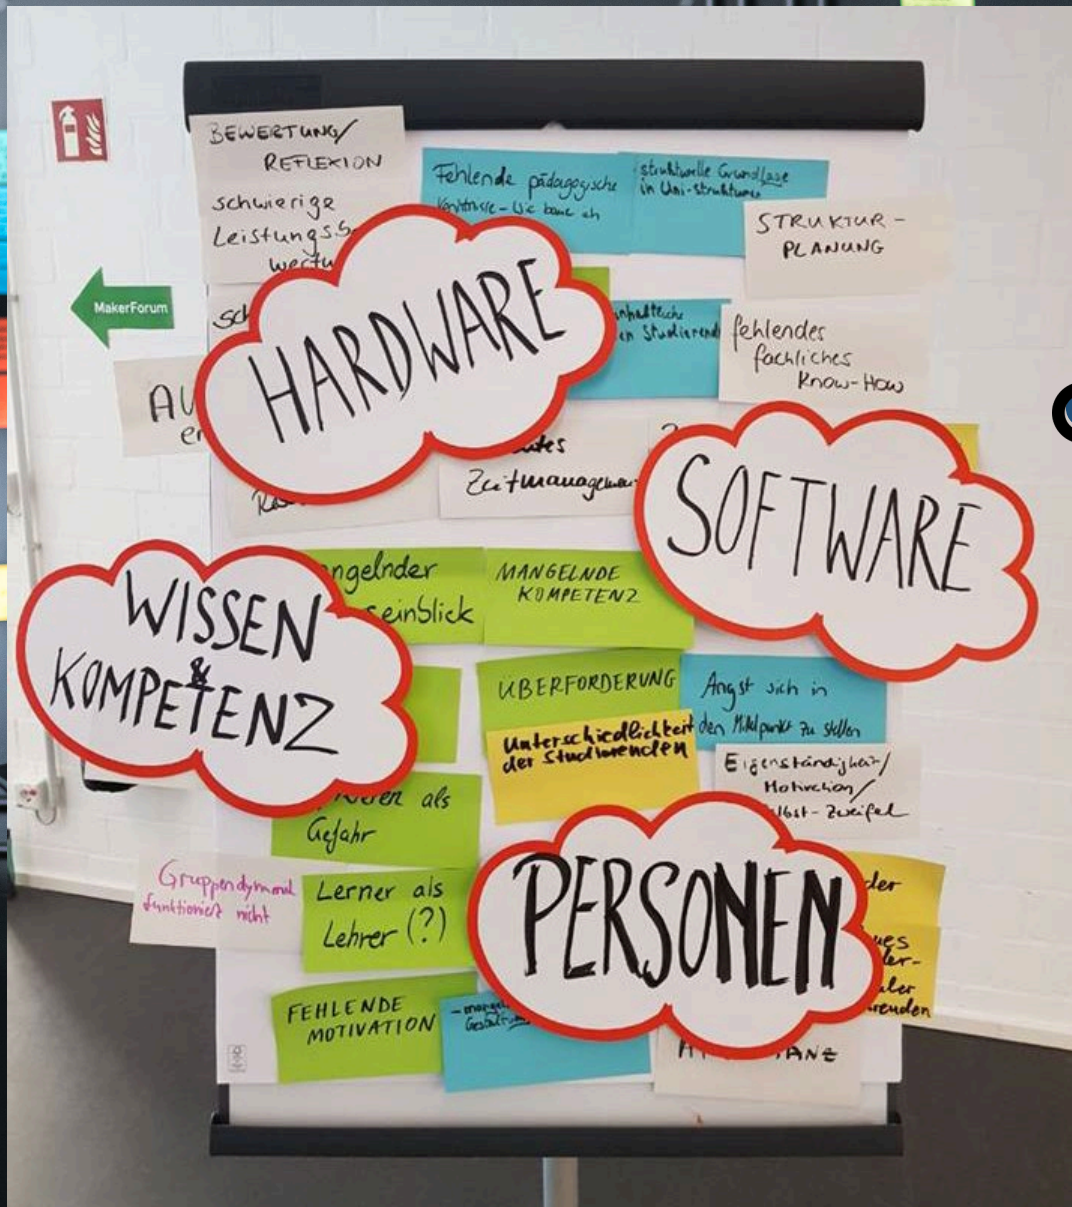 BEWERTUNG/
REFLEXION
schwierige
Leistungs
Fehlende pädagogische
strukturelle Grundlage
in Uni-strukturen
STRUKTUR-
PLANUNG
MakerForum
HARDWARE
inhaltliche
en Studierend
fehlendes
fachliches
Know-How
AU
Zeitmanagemen
SOFTWARE
ngelnder
seinblick
MANGELNDE
KOMPETENZ
WISSEN
&
KOMPETENZ
ÜBERFORDERUNG
Angst sich in
den Mittelpunkt zu stellen
Unterschiedlichkeit
der Studierenden
Eigenständigkeit/
Motivation/
lbst-Zweifel
als
Gefahr
PERSONEN
Gruppendynamik
funktioniert nicht
Lerner als
Lehrer (?)
der
FEHLENDE
MOTIVATION
renden